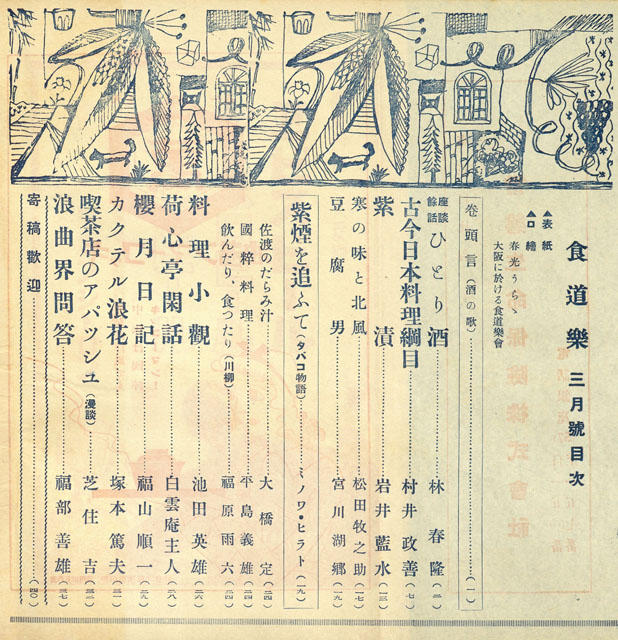 食道樂 三月號目次
▲表紙 春光うらゝ
▲口繪 大阪に於ける食道樂會
卷頭言（酒の歌）…（一）
座談餘話 ひとり酒…林春隆（二）
古今日本料理綱目…村井政善（七）
紫漬…岩井藍水（一三）
寒の味と北風…松田牧之助（一七）
豆腐男…宮川湖郷（一九）
紫煙を追ふて（タバコ物語）…ミノワ・ヒラト（一九）
佐渡のだらみ汁…大橋定（二四）
國粹料理…平島義雄（二四）
飲んだり、食つたり（川柳）…福原雨六（二四）
料理小觀…池田英雄（二六）
荷心亭閑話…白雲庵主人（二八）
櫻月日記…福山順一（二九）
カクテル浪花…塚本篤夫（三一）
喫茶店のアパッシュ（漫談）…芝住吉（三二）
浪曲界問答…福部善雄（三七）
寄稿歡迎…（四〇）